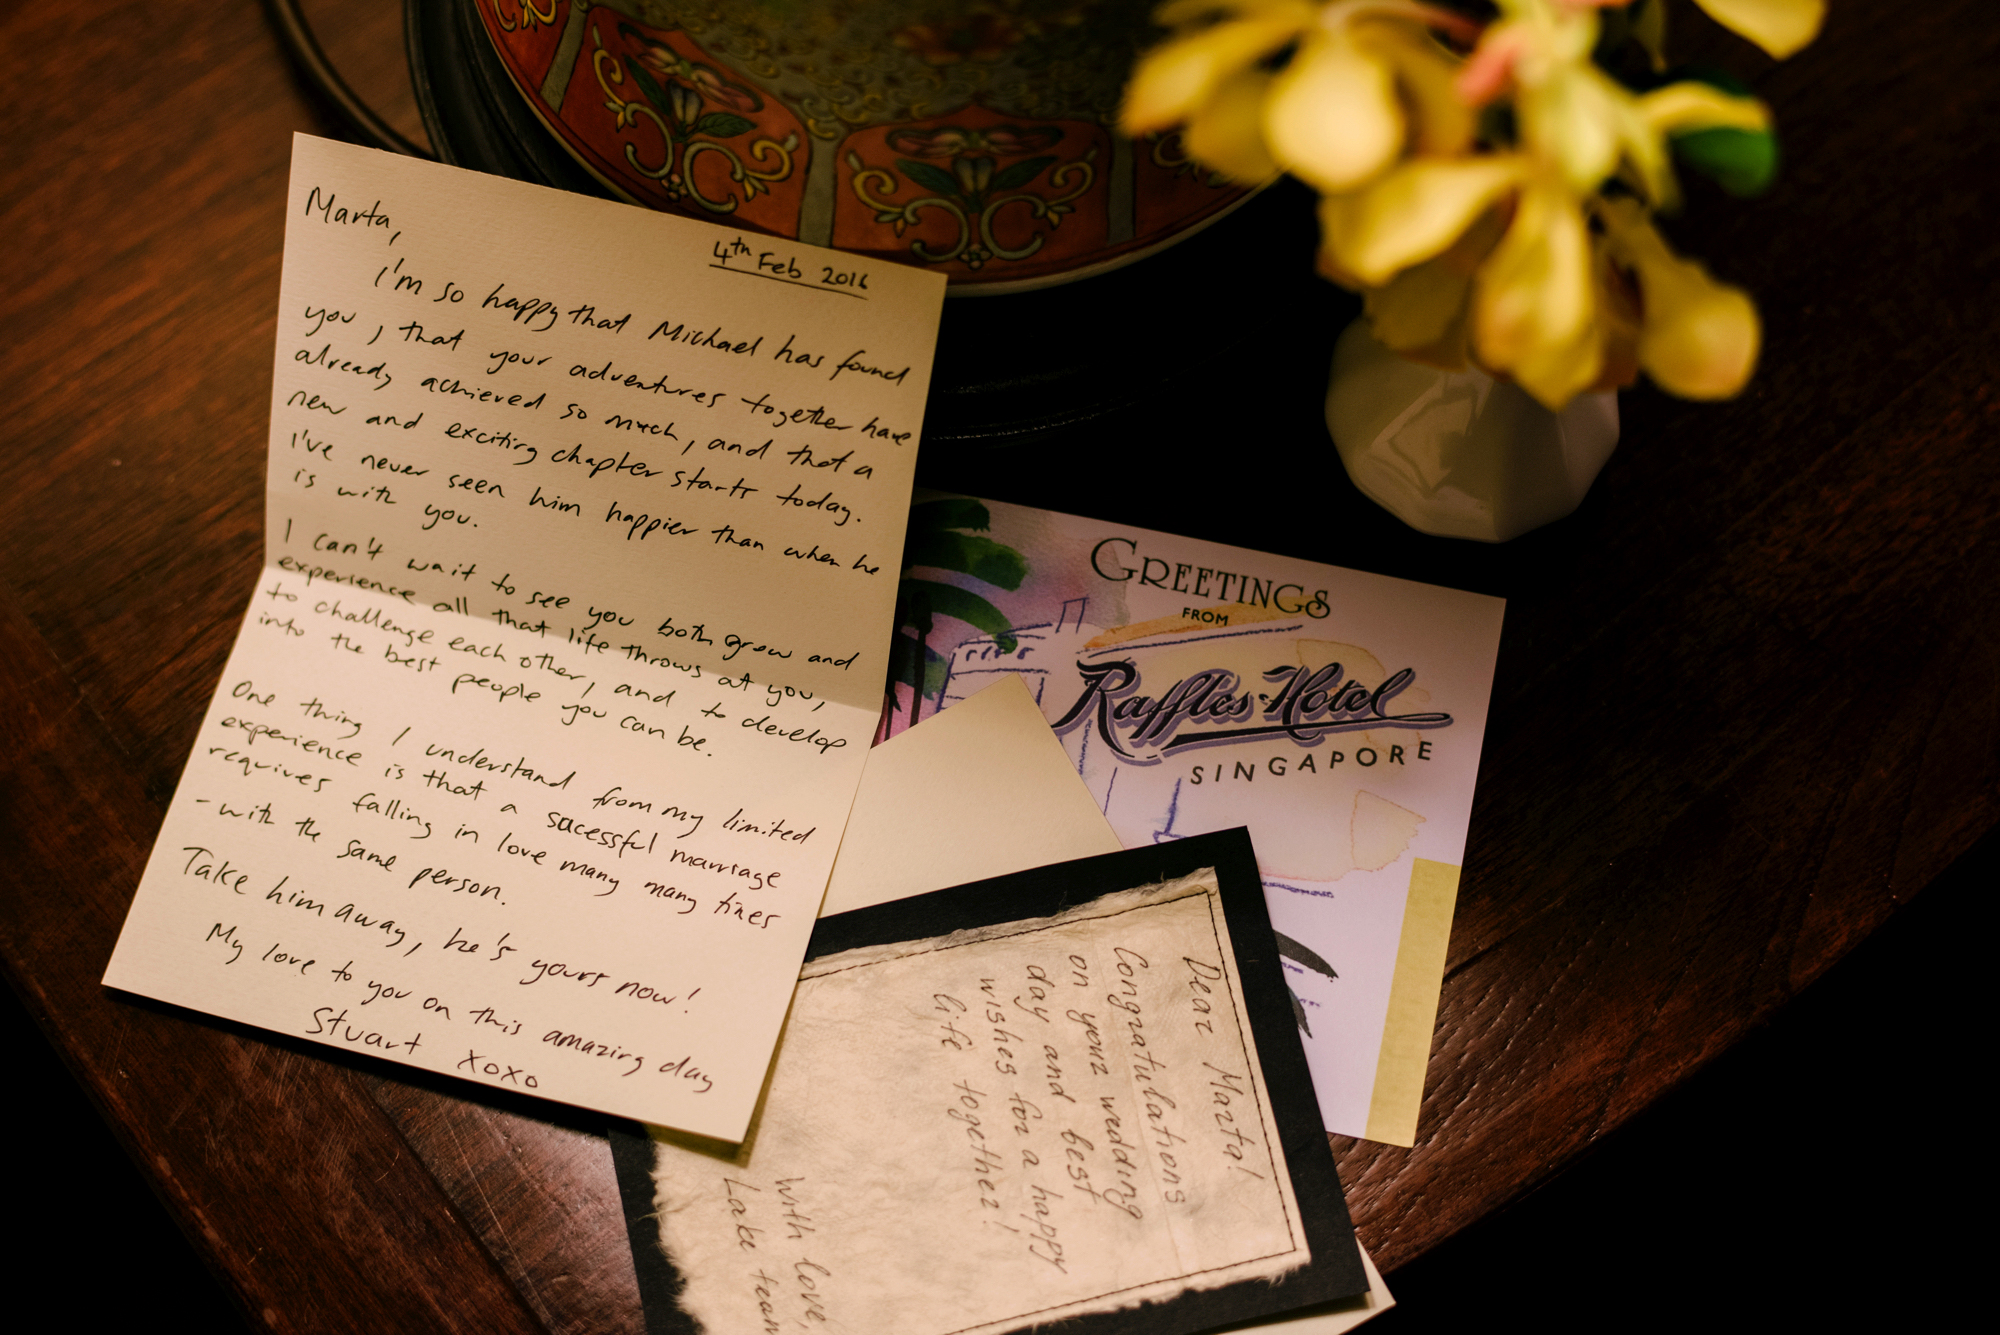 Marta,
4th Feb 2016
I'm so happy that Michael has found
you, that your adventures together have
already achieved so much, and that a
new and exciting chapter starts today.
I've never seen him happier than when he
is with you.
I can't wait to see you both grow and
experience all that life throws at you,
to challenge each other, and to develop
into the best people you can be.
One thing I understand from my limited
experience is that a sucessful marriage
requires falling in love many many times
- with the same person.
Take him away, he's yours now!
My love to you on this amazing day
Stuart xoxo
GREETINGS
FROM
Raffles Hotel
SINGAPORE
Dear Marta!
Congratulations
on your wedding
day and best
wishes for a happy
life together!
With love,
Lake team